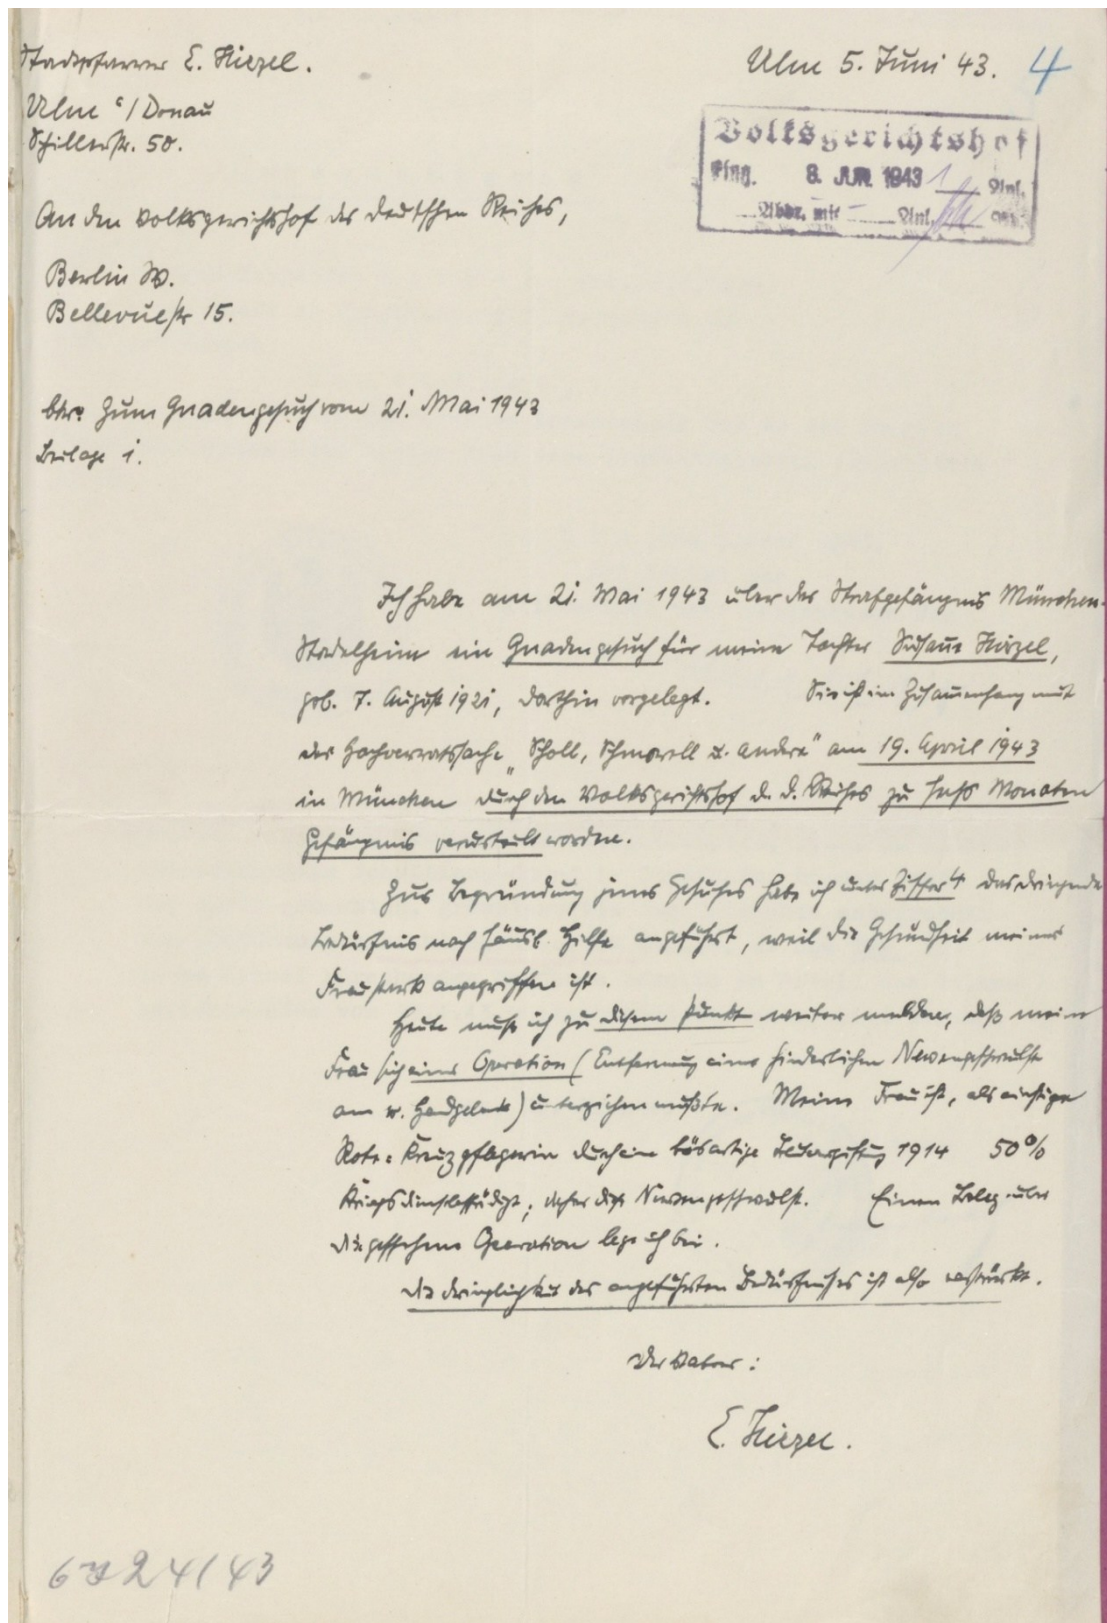 Stadtpfarrer E. Hirzel.
Ulm a/Donau
Schillerstr. 50.
Ulm 5. Juni 43. 4
Volksgerichtshof
Eing. 8. JUN. 1943 1 Anl.
Abdr. mit – Anl.
An den Volksgerichtshof des deutschen Reiches,
Berlin W.
Bellevuestr 15.
betr. Zum Gnadengesuch vom 21. Mai 1943
Beilage 1.
Ich habe am 21. Mai 1943 über das Strafgefängnis München-
Stadelheim ein Gnadengesuch für meine Tochter Susanne Hirzel,
geb. 7. August 1921, dorthin vorgelegt. Sie ist im Zusammenhang mit
der Hochverratssache „Scholl, Schmorell u. andere" am 19. April 1943
in München durch den Volksgerichtshof d. d. Reiches zu sechs Monaten
Gefängnis verurteilt worden.
Zur Begründung jenes Gesuches habe ich unter Ziffer 4 das dringende
Bedürfnis nach häusl. Hilfe angeführt, weil die Gesundheit meiner
Frau stark angegriffen ist.
Heute muß ich zu diesem Punkt weiter melden, daß meine
Frau sich einer Operation (Entfernung einer hinderlichen Nervengeschwulst
am r. Handgelenk) unterziehen mußte. Meine Frau ist, als einstige
Rote-Kreuzpflegerin durch eine bösartige Blutvergiftung 1914 50%
kriegsdienstbeschädigt; daher die Nervengeschwulst. Einen Beleg über
die geschehene Operation lege ich bei.
Die Dringlichkeit des angeführten Bedürfnisses ist also verstärkt.
Der Vater:
E. Hirzel.
6 J 24/43